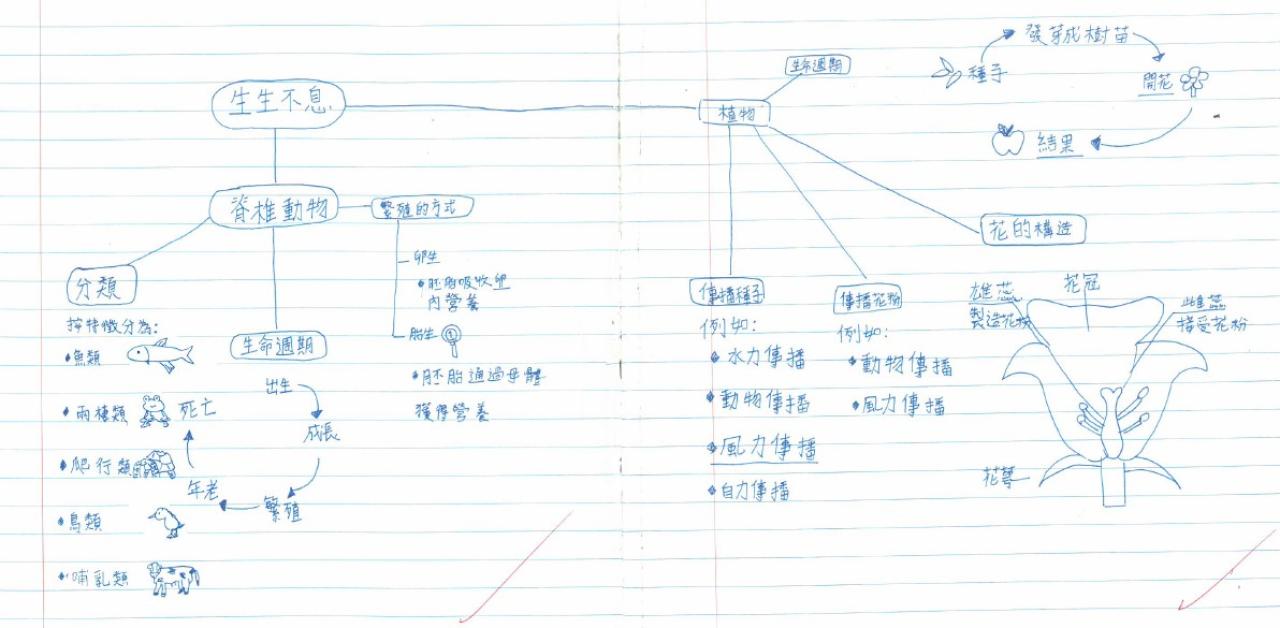 生生不息
脊椎動物
繁殖的方式
卵生
•胚胎吸收卵
內營養
胎生
•胚胎通過母體
獲得營養
分類
按特徵分為:
•魚類
•兩棲類
•爬行類
•鳥類
•哺乳類
生命週期
出生
成長
繁殖
年老
死亡
植物
生命週期
種子
發芽成樹苗
開花
結果
傳播種子
例如:
•水力傳播
•動物傳播
•風力傳播
•自力傳播
傳播花粉
例如:
•動物傳播
•風力傳播
花的構造
雄蕊
製造花粉
花冠
雌蕊
接受花粉
花萼